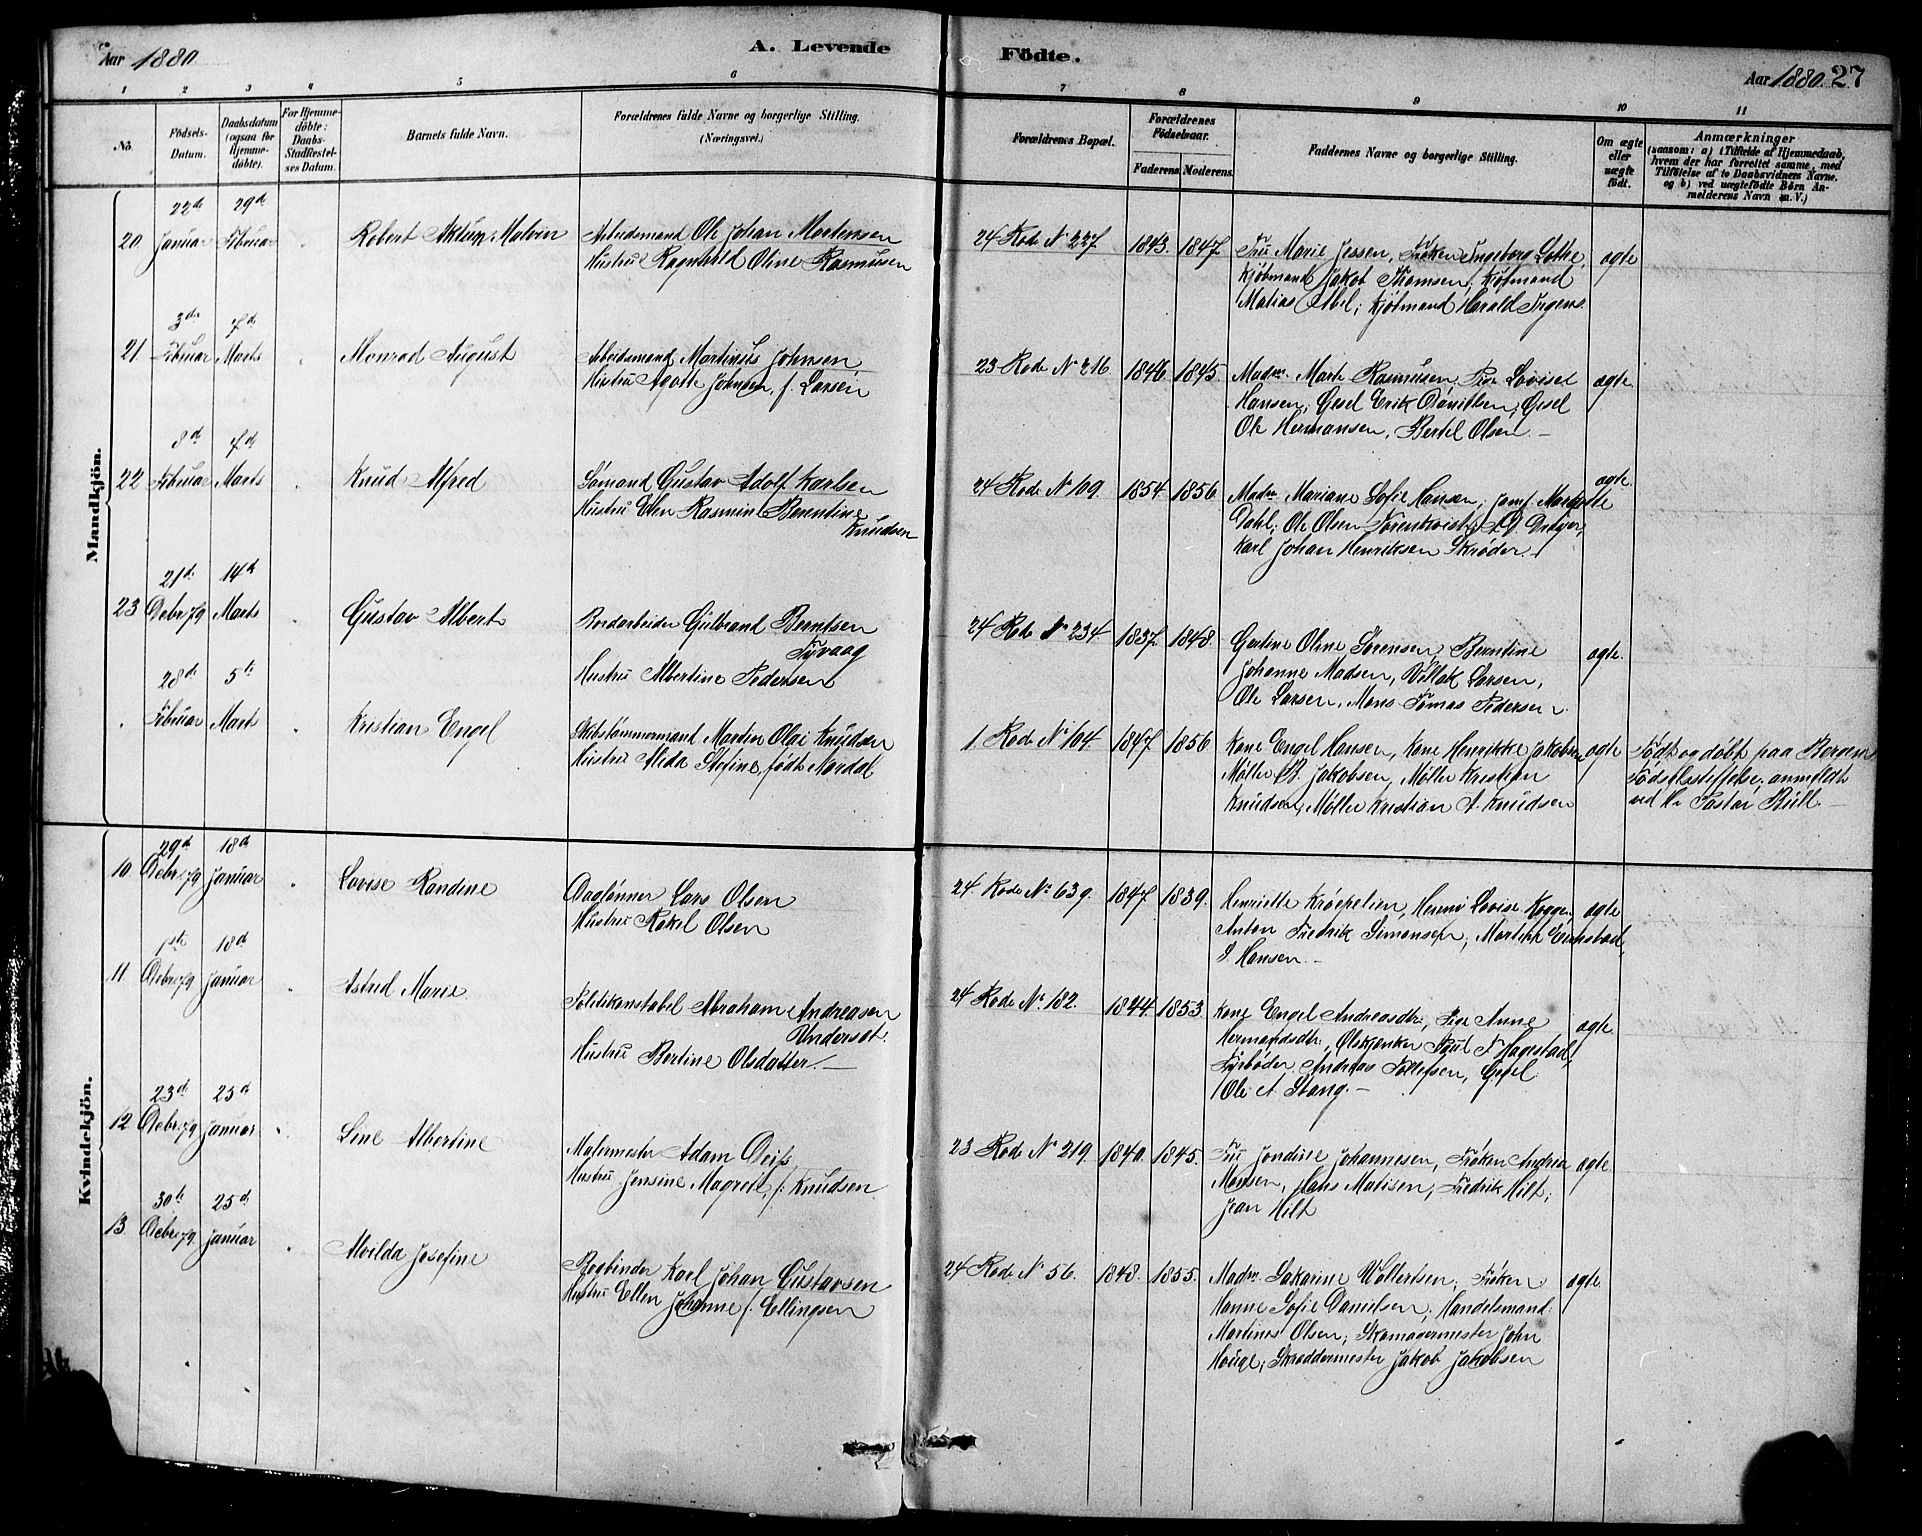 Aar 1880
A. Levende Födte.
Aar 1880. 27
1 2 3 4 5 6 7 8 9 10 11
No.
Födsels-Datum.
Daabsdatum (ogsaa for Hjemme-döbte).
For Hjemme-döbte: Daabs-Stadfæstel-ses Datum.
Barnets fulde Navn.
Forældrenes fulde Navne og borgerlige Stilling.
(Næringsvei.)
Forældrenes Bopæl.
Forældrenes Födselsaar.
Faderens Moderens
Faddernes Navne og borgerlige Stilling.
Om ægte eller uægte födt.
Anmærkninger
(saasom: a) i Tilfælde af Hjemmedaab,
hvem der har forrettet samme, med
Tilföielse af to Daabsvidners Navne,
og b) ved uægtefödte Börn An-
melderens Navn m. V.)
Mandkjön.
22d 29d
20 Januar Februar Robert Malvin
Arbeidsmand Ole Johan Mortensen
Hustru Ragnhild Oline Rasmusen
24 Rode No 227. 1843. 1847.
Fru Marie Jessen, Frøken Ingeborg Lothe,
Kjøbmand Jakob Thomsen, Kjøbmand
Matias Abel; Kjøbmand Harald Irgens.
ægte
3die 7d
21 Februar Marts Monrad August
Arbeidsmand Martinus Johnsen
Hustru Agathe Johnsen, f. Larsen
23 Rode No 216 1846. 1845.
Madm. Marte Rasmusen, Pige Lovise
Hansen; Gesel Erik Danielsen, Gesel
Ole Hermansen, Bertel Olsen.
ægte.
8d 7d
22 Februar Marts Knud Alfred
Sømand Gustav Adolf Karlsen
Hustru Ellen Rasmine Berentine
Knudsen
24 Rode No 109. 1854. 1856.
Madm. Mariane Sofie Hansen; Jomf. Margrethe
Dahl; Ole Olsen Dreyer,
Karl Johan Henriksen Skrøder.
ægte.
21de 14d
23 Debr 79 Marts Gustav Albert
Gulbrand Berntsen
Tyvaag
Hustru Albertine Pedersen
24 Rode No 234. 1837. 1848.
Gertine Oline Sørensen, Berntine
Johanne Madsen, Larsen,
Ole Larsen, Mons Tomas Pedersen.
ægte.
28d 5te
Februar Marts Kristian Engel
Skibstømmermand Martin Olai Knudsen
Hustru Alida Stefine, født Nordal
1 Rode No 164. 1847. 1856
Kone Engel Hansen, Kone Henrikke Jakobsen
Møller B. Jakobsen, Møller Kristian
Knudsen, Møller Kristian A. Knudsen
ægte
Født og døbt paa Bergens
Fødselsstiftelse, anmeldt
ved Hr Pastor Bull.
Kvindekjön.
29d 18d
10 Debr 79 Januar Lovise Randine
Daglønner Lars Olsen
Hustru Rakel Olsen
24 Rode No 639. 1847. 1839.
Henriette Krøepelien, Henni Lovise
Anton Fredrik Simonsen,
Hansen.
ægte
1ste 18d
11 Debr 79 Januar Astrid Marie
Politikonstabel Abraham Andreasen
Hustru Bertine Olsdatter.
24 Rode No. 182. 1844. 1853.
Kone Engel Andreasdtr, Pige Anne
Hermansdtr, Ølskjenker Paul N Hagestad,
Fyrbøder Andreas Tollefsen, Gesel
Ole A. Stang.
ægte.
23d 25d
12 Debr 79 Januar Line Albertine
Malermester Adam Deiss
Hustru Jensine Magrete, f. Knudsen
23 Rode No 219. 1840. 1845.
Fru Jondine Johannesen, Frøken Andrea
Monsen, Hans Matisen, Fredrik Hilt;
Jean Hilt
ægte
30te 25d
13. Debr 79. Januar Alvilda Josefine
Bogbinder Karl Johan Gustavsen
Hustru Ellen Johanne f. Ellingsen
24 Rode No 56. 1848. 1855.
Madm. Sakarine Wollertsen; Frøken
Hanne Sofie Danielsen, Handelsmand
Martines Olsen; Skomagermester John
Houge; Skreddermester Jakob Jakobsen
ægte.